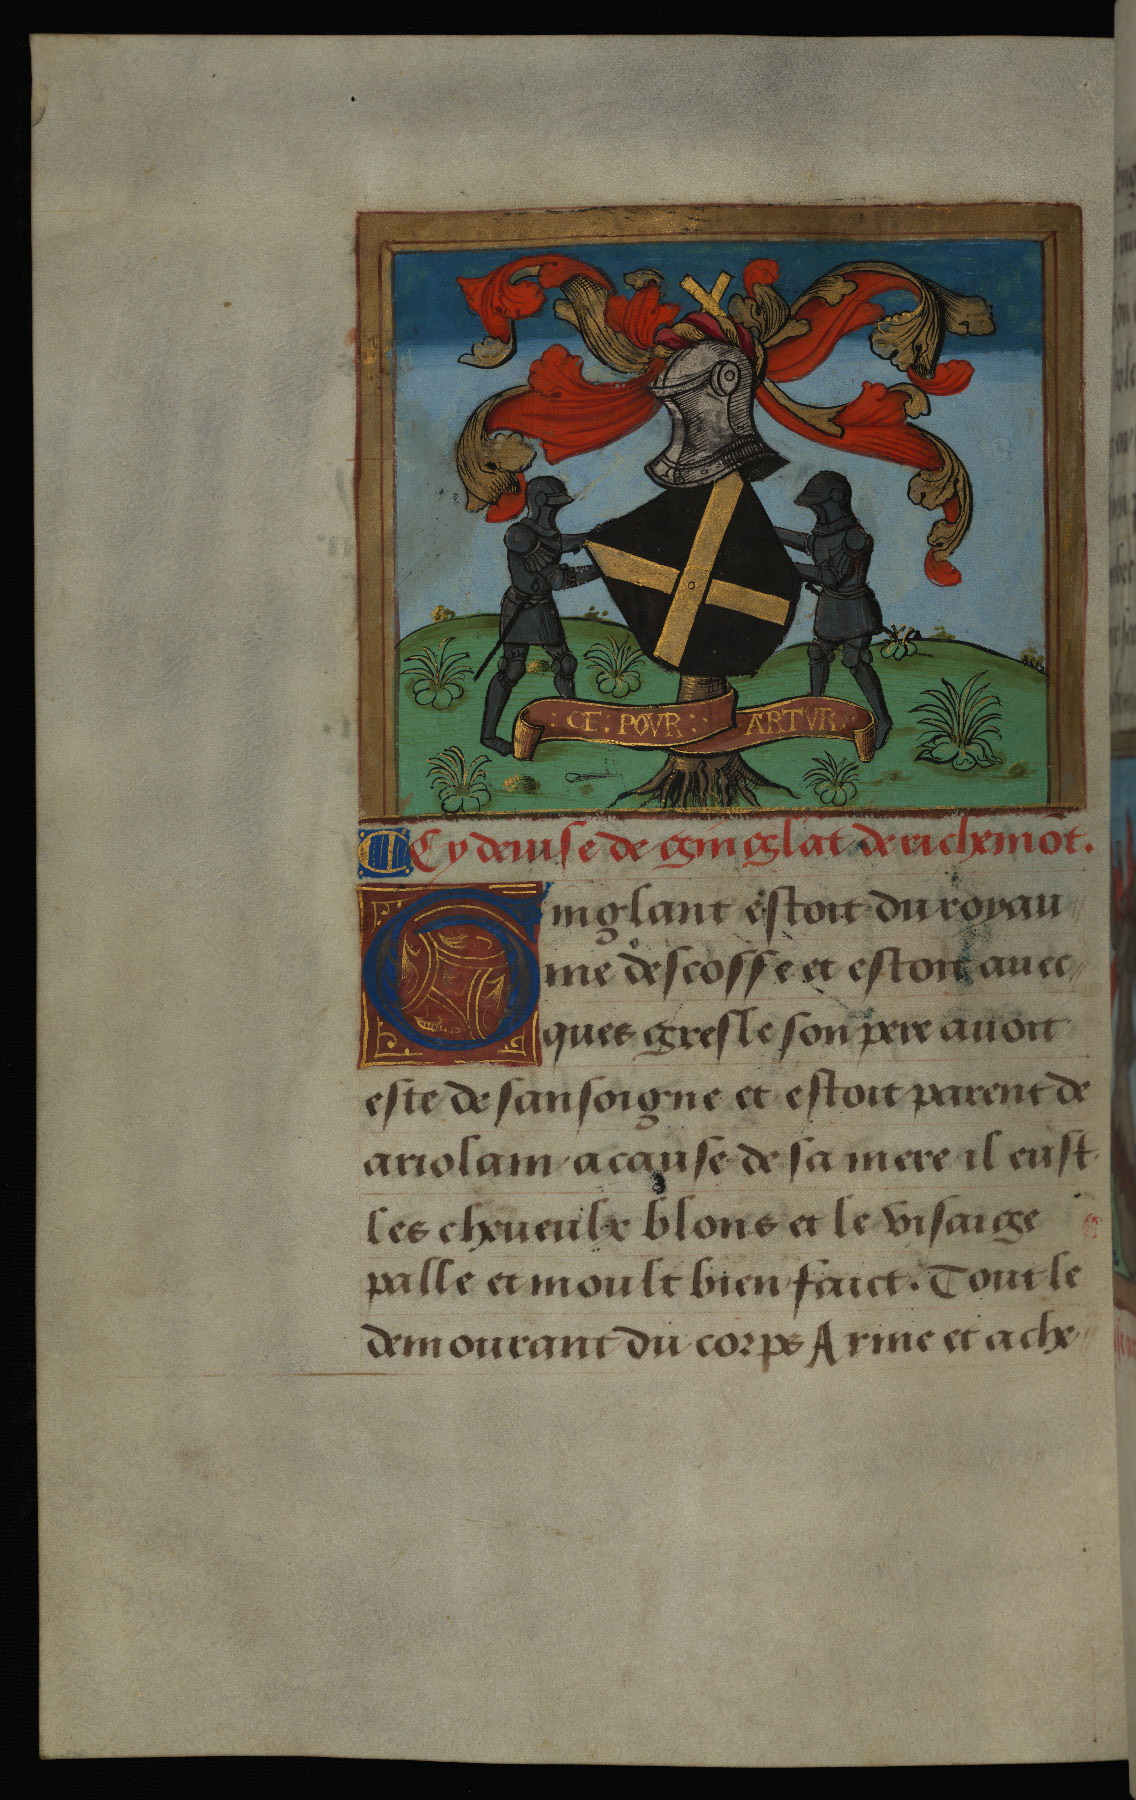 : CE : POVR : ARTVR :
Cy deuise de gginglāt de richemōt.
Ginglant estoit du royau
me descosse et estoit auec
ques gresle son pere auoit
este de sansoigne et estoit parent de
ariolam a cause de sa mere il eust
les cheueulx blons et le visaige
palle et moult bien faict. Tout le
demourant du corps Arme et a che